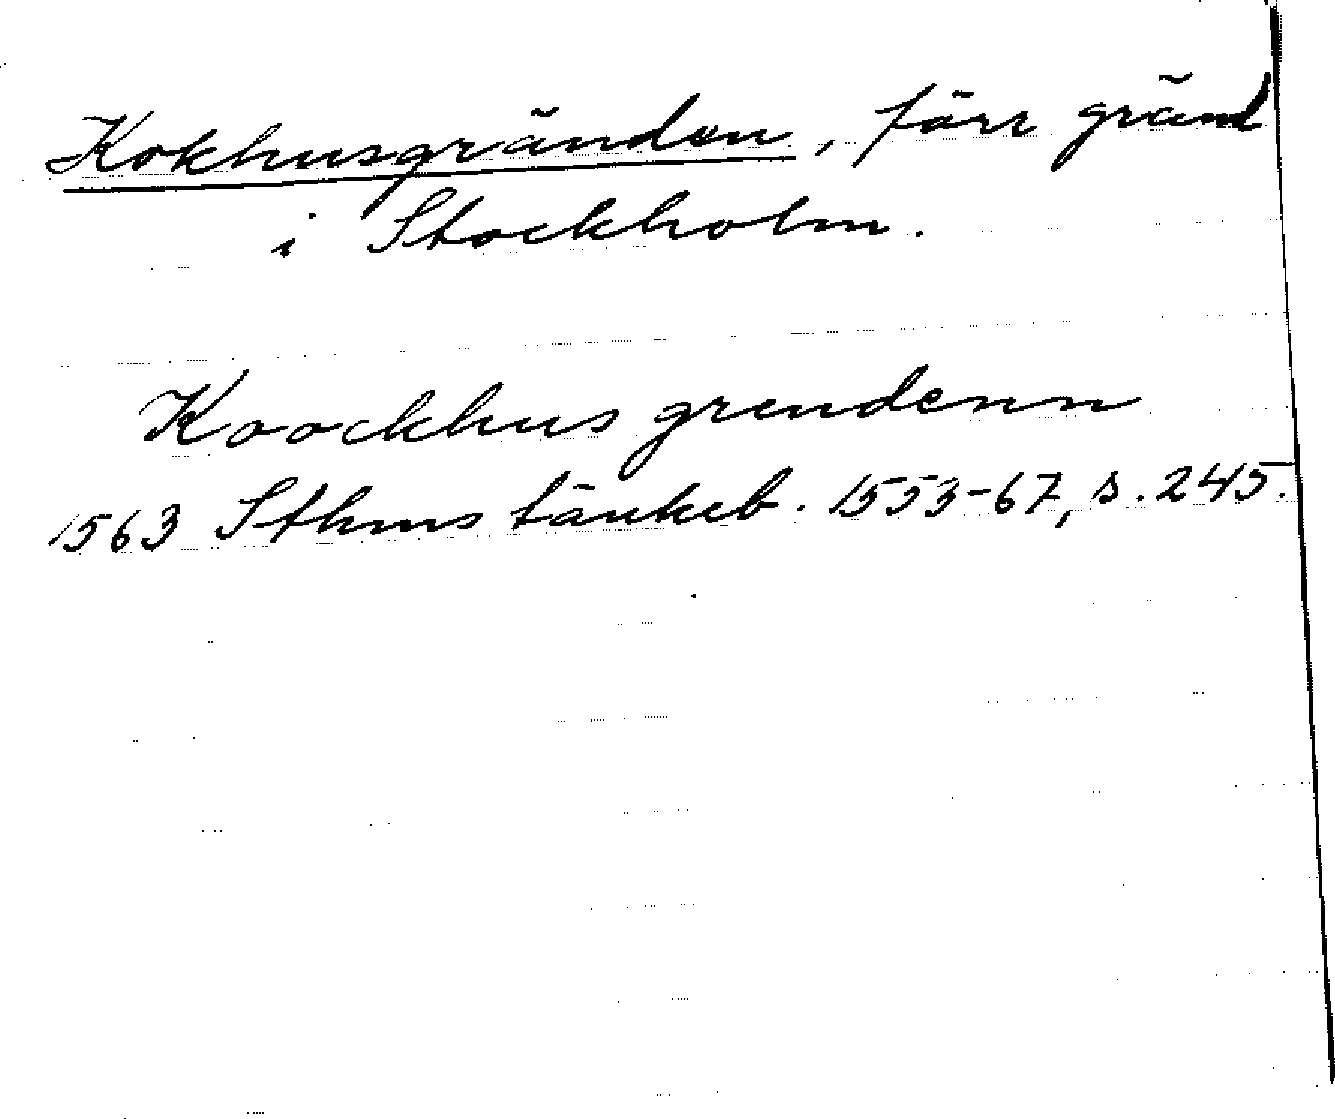 Kokhusgränden, förr gränd
i Stockholm.
Koockhus grendenn
1563 Sthms tänkeb. 1553-67, s. 245.